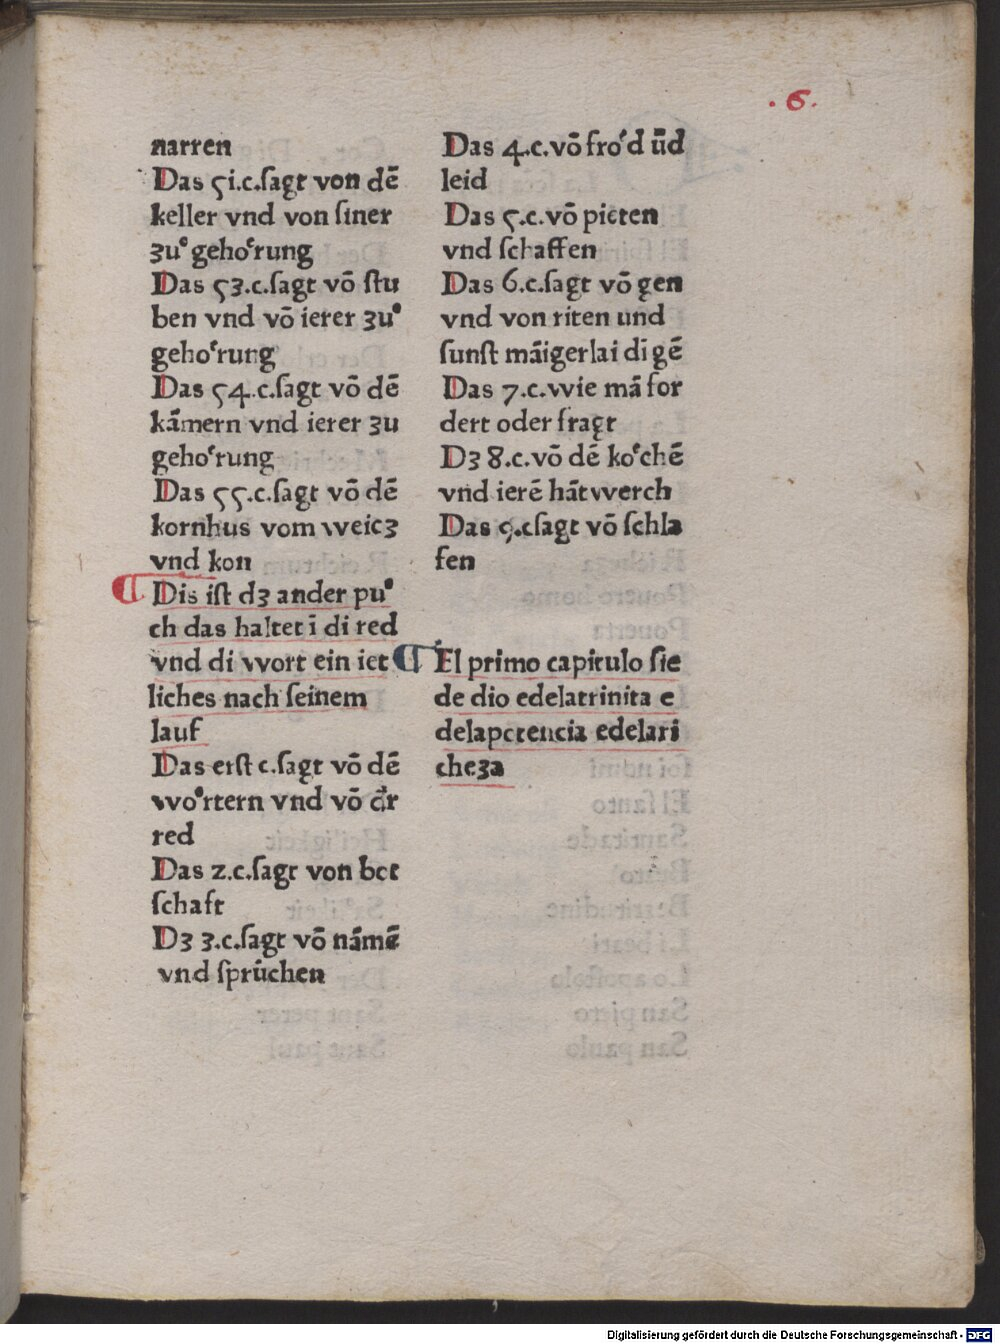 . 6 .
narren
Das 5i.c.sagt von dē
keller vnd von siner
zuͦ gehoͤrung
Das 53.c.sagt vō stu
ben vnd vō ierer zuͦ
gehoͤrung
Das 54.c.sagt vō dē
kāmern vnd ierer zu
gehoͤrung
Das 55.c.sagt vō dē
kornhus vom weicz
vnd kon
¶ Dis ist dz ander puͦ
ch das haltet ī di red
vnd di wort ein iet
liches nach seinem
lauf
Das erst c.sagt vō dē
woͤrtern vnd vō dr̄
red
Das 2.c.sagt von bot
schaft
Dz 3.c.sagt vō nāmē
vnd sprüchen
Das 4.c.vō froͤd vn̄d
leid
Das 5.c.vō pieten
vnd schaffen
Das 6.c.sagt vō gen
vnd von riten und
sunst māigerlai di gē
Das 7.c.wie mā for
dert oder fragt
Dz 8.c.vō dē koͤchē
vnd ierē hātwerch
Das 9.c sagt vō schla
fen
¶ El primo capitulo sie
de dio edelatrinita e
delapotencia edelari
cheza
Digitalisierung gefördert durch die Deutsche Forschungsgemeinschaft - DFG